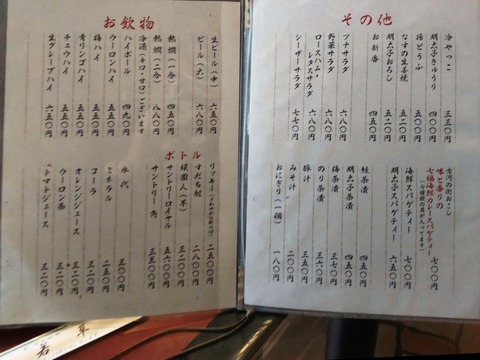 その他
冷やっこ 三五〇円
明太子きゅうり
揚どうふ 五〇〇円
なすの生姜焼 五二〇円
明太子おろし 四五〇円
お新香
ツナサラダ 六八〇円
野菜サラダ 六八〇円
ロースハム・レタスサラダ 六八〇円
シーザーサラダ 七七〇円
味と香りの
七福海鮮カレースパゲティー 七〇〇円
海鮮スパゲティー 七〇〇円
明太子スパゲティー 六五〇円
鮭茶漬 四五〇円
明太子茶漬 四五〇円
のり茶漬 三六〇円
梅茶漬 三六〇円
豚汁 三七〇円
みそ汁 二〇〇円
おにぎり(一個) 一八〇円
お飲物
生ビール(中)
ビール(大) 六八〇円
熱燗(一合)
熱燗(二合) 八〇〇円
冷酒(辛口・甘口)ございます
ハイボール 四九〇円
ウーロンハイ 五五〇円
梅ハイ 五五〇円
青リンゴハイ 五五〇円
チュウハイ 五五〇円
生グレープハイ 六五〇円
ボトル
すだち酎 二八〇〇円
サントリーロイヤル
サントリー角
氷代 三〇〇円
ミネラル 五二〇円
コーラ 三二〇円
オレンジジュース 三二〇円
ウーロン茶 三二〇円
トマトジュース 三二〇円